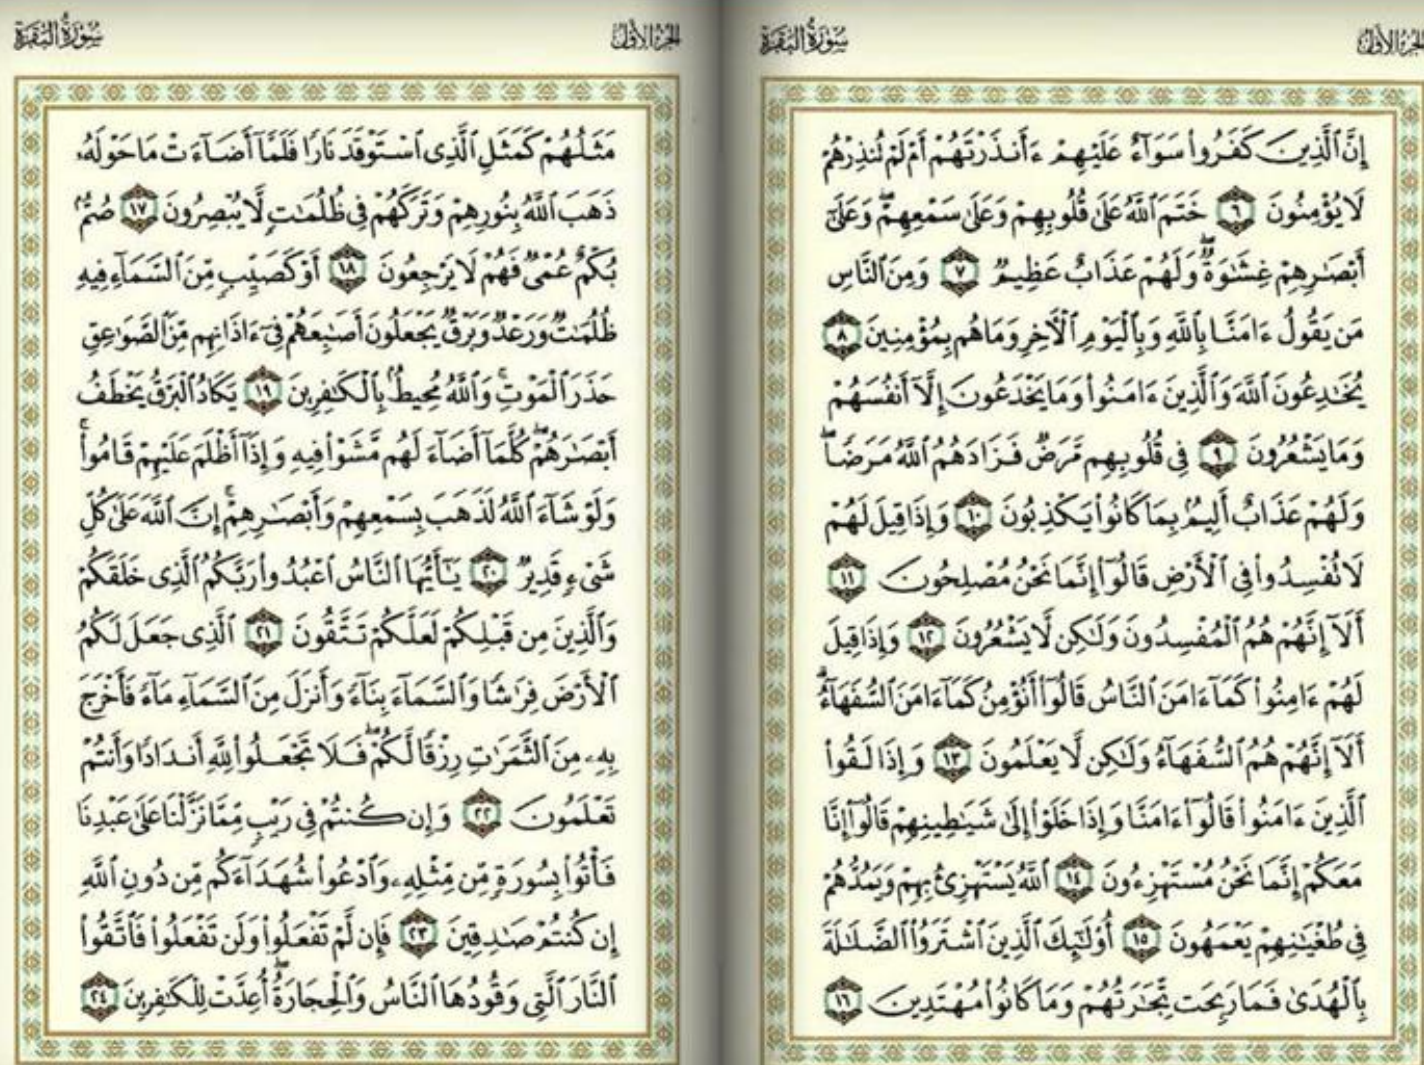 الجزء الأول
سورة البقرة
إِنَّ ٱلَّذِينَ كَفَرُوا۟ سَوَآءٌ عَلَيْهِمْ ءَأَنذَرْتَهُمْ أَمْ لَمْ تُنذِرْهُمْ
لَا يُؤْمِنُونَ ٦ خَتَمَ ٱللَّهُ عَلَىٰ قُلُوبِهِمْ وَعَلَىٰ سَمْعِهِمْ ۖ وَعَلَىٰٓ
أَبْصَـٰرِهِمْ غِشَـٰوَةٌ ۖ وَلَهُمْ عَذَابٌ عَظِيمٌ ٧ وَمِنَ ٱلنَّاسِ
مَن يَقُولُ ءَامَنَّا بِٱللَّهِ وَبِٱلْيَوْمِ ٱلْـَٔاخِرِ وَمَا هُم بِمُؤْمِنِينَ ٨
يُخَـٰدِعُونَ ٱللَّهَ وَٱلَّذِينَ ءَامَنُوا۟ وَمَا يَخْدَعُونَ إِلَّآ أَنفُسَهُمْ
وَمَا يَشْعُرُونَ ٩ فِى قُلُوبِهِم مَّرَضٌ فَزَادَهُمُ ٱللَّهُ مَرَضًا ۖ
وَلَهُمْ عَذَابٌ أَلِيمٌۢ بِمَا كَانُوا۟ يَكْذِبُونَ ١٠ وَإِذَا قِيلَ لَهُمْ
لَا تُفْسِدُوا۟ فِى ٱلْأَرْضِ قَالُوٓا۟ إِنَّمَا نَحْنُ مُصْلِحُونَ ١١
أَلَآ إِنَّهُمْ هُمُ ٱلْمُفْسِدُونَ وَلَـٰكِن لَّا يَشْعُرُونَ ١٢ وَإِذَا قِيلَ
لَهُمْ ءَامِنُوا۟ كَمَآ ءَامَنَ ٱلنَّاسُ قَالُوٓا۟ أَنُؤْمِنُ كَمَآ ءَامَنَ ٱلسُّفَهَآءُ ۗ
أَلَآ إِنَّهُمْ هُمُ ٱلسُّفَهَآءُ وَلَـٰكِن لَّا يَعْلَمُونَ ١٣ وَإِذَا لَقُوا۟
ٱلَّذِينَ ءَامَنُوا۟ قَالُوٓا۟ ءَامَنَّا وَإِذَا خَلَوْا۟ إِلَىٰ شَيَـٰطِينِهِمْ قَالُوٓا۟ إِنَّا
مَعَكُمْ إِنَّمَا نَحْنُ مُسْتَهْزِءُونَ ١٤ ٱللَّهُ يَسْتَهْزِئُ بِهِمْ وَيَمُدُّهُمْ
فِى طُغْيَـٰنِهِمْ يَعْمَهُونَ ١٥ أُو۟لَـٰٓئِكَ ٱلَّذِينَ ٱشْتَرَوُا۟ ٱلضَّلَـٰلَةَ
بِٱلْهُدَىٰ فَمَا رَبِحَت تِّجَـٰرَتُهُمْ وَمَا كَانُوا۟ مُهْتَدِينَ ١٦
الجزء الأول
سورة البقرة
مَثَلُهُمْ كَمَثَلِ ٱلَّذِى ٱسْتَوْقَدَ نَارًا فَلَمَّآ أَضَآءَتْ مَا حَوْلَهُۥ
ذَهَبَ ٱللَّهُ بِنُورِهِمْ وَتَرَكَهُمْ فِى ظُلُمَـٰتٍ لَّا يُبْصِرُونَ ١٧ صُمٌّۢ
بُكْمٌ عُمْىٌ فَهُمْ لَا يَرْجِعُونَ ١٨ أَوْ كَصَيِّبٍ مِّنَ ٱلسَّمَآءِ فِيهِ
ظُلُمَـٰتٌ وَرَعْدٌ وَبَرْقٌ يَجْعَلُونَ أَصَـٰبِعَهُمْ فِىٓ ءَاذَانِهِم مِّنَ ٱلصَّوَٰعِقِ
حَذَرَ ٱلْمَوْتِ ۚ وَٱللَّهُ مُحِيطٌۢ بِٱلْكَـٰفِرِينَ ١٩ يَكَادُ ٱلْبَرْقُ يَخْطَفُ
أَبْصَـٰرَهُمْ ۖ كُلَّمَآ أَضَآءَ لَهُم مَّشَوْا۟ فِيهِ وَإِذَآ أَظْلَمَ عَلَيْهِمْ قَامُوا۟ ۚ
وَلَوْ شَآءَ ٱللَّهُ لَذَهَبَ بِسَمْعِهِمْ وَأَبْصَـٰرِهِمْ ۚ إِنَّ ٱللَّهَ عَلَىٰ كُلِّ
شَىْءٍ قَدِيرٌ ٢٠ يَـٰٓأَيُّهَا ٱلنَّاسُ ٱعْبُدُوا۟ رَبَّكُمُ ٱلَّذِى خَلَقَكُمْ
وَٱلَّذِينَ مِن قَبْلِكُمْ لَعَلَّكُمْ تَتَّقُونَ ٢١ ٱلَّذِى جَعَلَ لَكُمُ
ٱلْأَرْضَ فِرَٰشًا وَٱلسَّمَآءَ بِنَآءً وَأَنزَلَ مِنَ ٱلسَّمَآءِ مَآءً فَأَخْرَجَ
بِهِۦ مِنَ ٱلثَّمَرَٰتِ رِزْقًا لَّكُمْ ۖ فَلَا تَجْعَلُوا۟ لِلَّهِ أَندَادًا وَأَنتُمْ
تَعْلَمُونَ ٢٢ وَإِن كُنتُمْ فِى رَيْبٍ مِّمَّا نَزَّلْنَا عَلَىٰ عَبْدِنَا
فَأْتُوا۟ بِسُورَةٍ مِّن مِّثْلِهِۦ وَٱدْعُوا۟ شُهَدَآءَكُم مِّن دُونِ ٱللَّهِ
إِن كُنتُمْ صَـٰدِقِينَ ٢٣ فَإِن لَّمْ تَفْعَلُوا۟ وَلَن تَفْعَلُوا۟ فَٱتَّقُوا۟
ٱلنَّارَ ٱلَّتِى وَقُودُهَا ٱلنَّاسُ وَٱلْحِجَارَةُ ۖ أُعِدَّتْ لِلْكَـٰفِرِينَ ٢٤